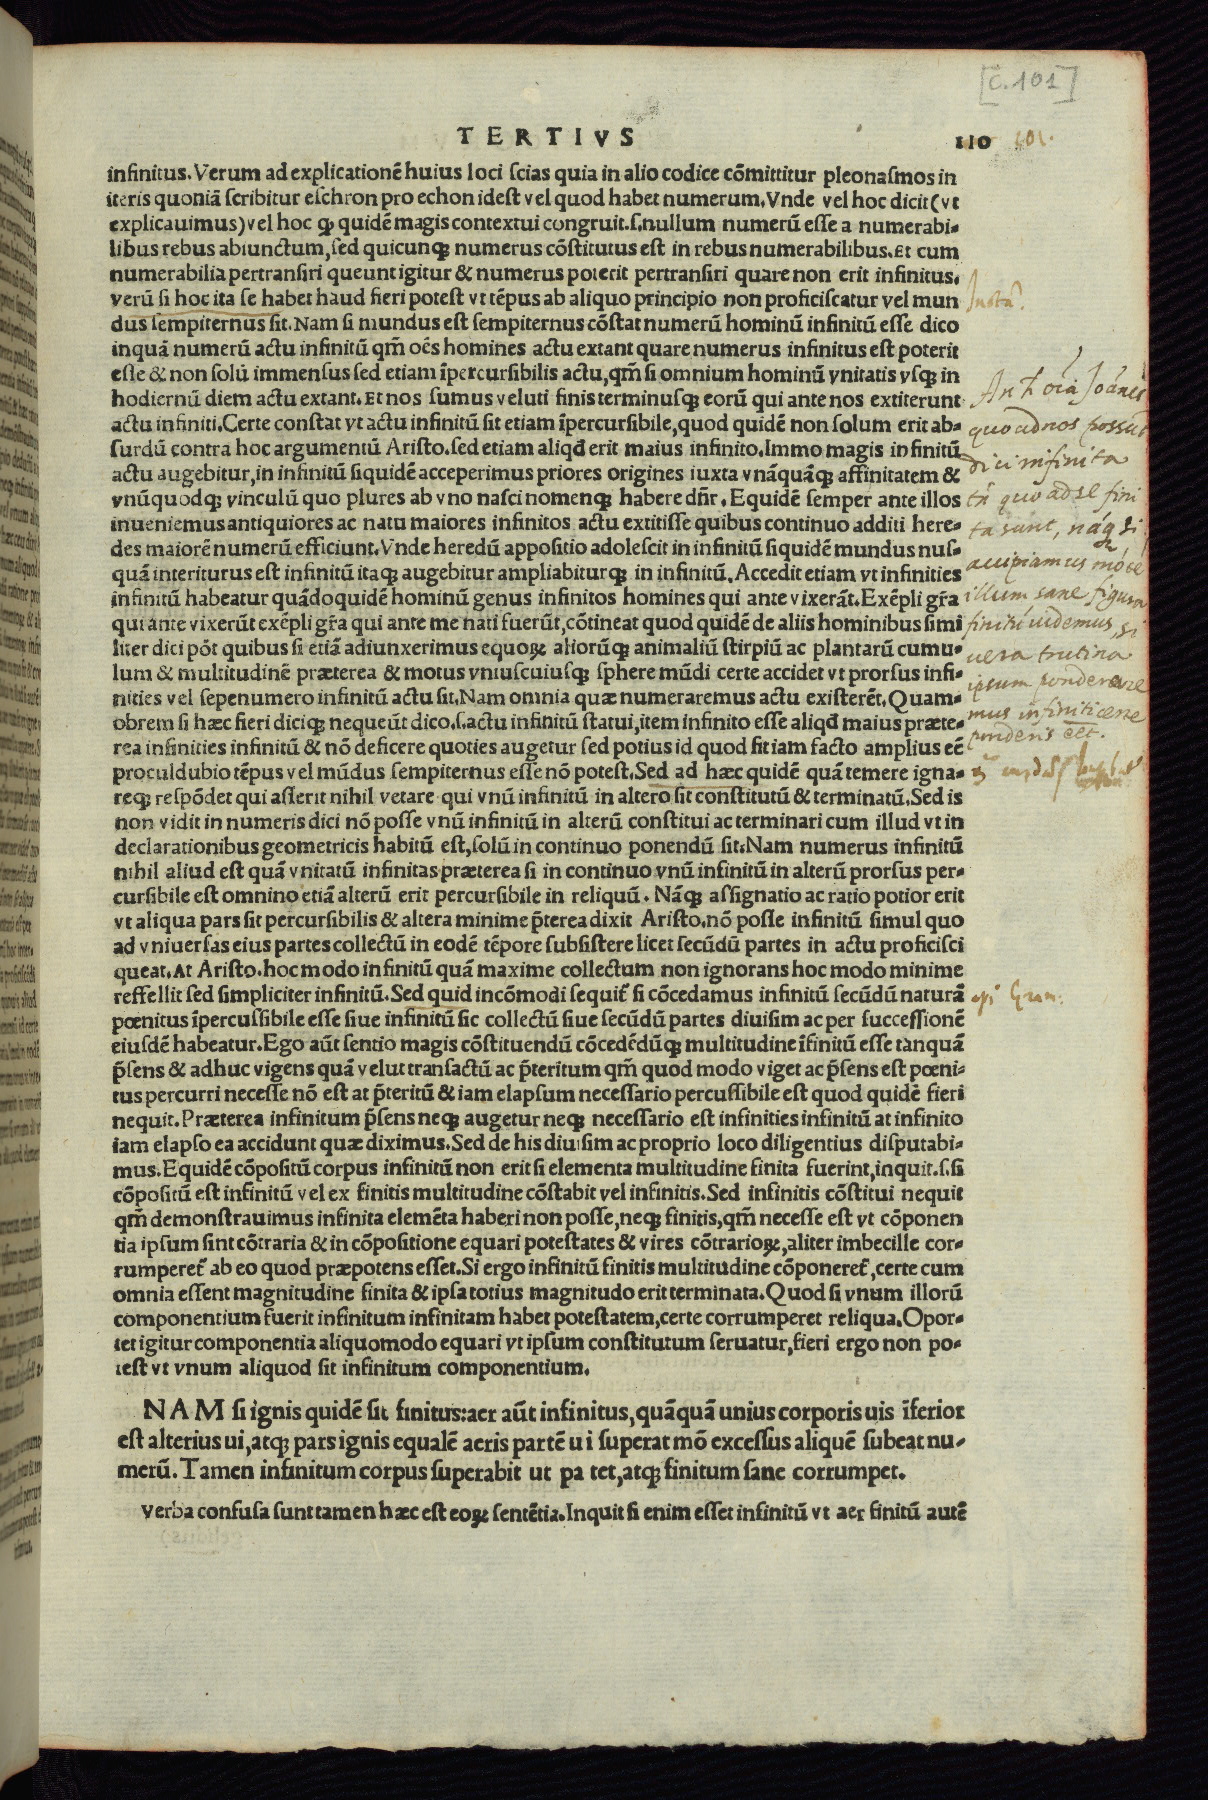 [c. 101]
TERTIVS
110 101.
infinitus. Verum ad explicationē huius loci scias quia in alio codice cōmittitur pleonasmos in
iteris quoniā scribitur eschron pro echon idest vel quod habet numerum. Vnde vel hoc dicit (vt
explicauimus) vel hoc ꝙ quidē magis contextui congruit. s. nullum numerū esse a numerabi-
libus rebus abiunctum, sed quicunqꝫ numerus cōstitutus est in rebus numerabilibus. Et cum
numerabilia pertransiri queunt igitur & numerus poterit pertransiri quare non erit infinitus.
verū si hoc ita se habet haud fieri potest vt tēpus ab aliquo principio non proficiscatur vel mun
dus sempiternus sit. Nam si mundus est sempiternus cōstat numerū hominū infinitū esse dico
inquā numerū actu infinitū qm̄ oēs homines actu extant quare numerus infinitus est poterit
esse & non solū immensus sed etiam īpercursibilis actu, qm̄ si omnium hominū vnitatis vsqꝫ in
hodiernū diem actu extant. Et nos sumus veluti finis terminusqꝫ eorū qui ante nos extiterunt
actu infiniti. Certe constat vt actu infinitū sit etiam īpercursibile, quod quidē non solum erit ab-
surdū contra hoc argumentū Aristo. sed etiam aliqd erit maius infinito. Immo magis infinitū
actu augebitur, in infinitū siquidē acceperimus priores origines iuxta vnāquāqꝫ affinitatem &
vnūquodqꝫ vinculū quo plures ab vno nasci nomenqꝫ habere dn̄r. Equidē semper ante illos
inueniemus antiquiores ac natu maiores infinitos actu extitisse quibus continuo additi here-
des maiorē numerū efficiunt. Vnde heredū appositio adolescit in infinitū siquidē mundus nus-
quā interiturus est infinitū itaqꝫ augebitur ampliabiturqꝫ in infinitū. Accedit etiam vt infinities
infinitū habeatur quādoquidē hominū genus infinitos homines qui ante vixerāt. Exēpli gr̄a
qui ante vixerūt exēpli gr̄a qui ante me nati fuerūt, cōtineat quod quidē de aliis hominibus simi
liter dici pōt quibus si etiā adiunxerimus equoꝝ aliorūqꝫ animaliū stirpiū ac plantarū cumu-
lum & multitudinē præterea & motus vniuscuiusqꝫ sphere mūdi certe accidet vt prorsus infi-
nities vel sepenumero infinitū actu sit. Nam omnia quæ numeraremus actu existerēt. Quam-
obrem si hæc fieri diciqꝫ nequeūt dico. s. actu infinitū statui, item infinito esse aliqd maius præte-
rea infinities infinitū & nō deficere quoties augetur sed potius id quod fit iam facto amplius eē
proculdubio tēpus vel mūdus sempiternus esse nō potest. Sed ad hæc quidē quā temere igna-
reqꝫ respōdet qui asserit nihil vetare qui vnū infinitū in altero sit constitutū & terminatū. Sed is
non vidit in numeris dici nō posse vnū infinitū in alterū constitui ac terminari cum illud vt in
declarationibus geometricis habitū est, solū in continuo ponendū sit. Nam numerus infinitū
nihil aliud est quā vnitatū infinitas præterea si in continuo vnū infinitū in alterū prorsus per-
cursibile est omnino etiā alterū erit percursibile in reliquū. Nāqꝫ assignatio ac ratio potior erit
vt aliqua pars sit percursibilis & altera minime p̄terea dixit Aristo. nō posse infinitū simul quo
ad vniuersas eius partes collectū in eodē tēpore subsistere licet secūdū partes in actu proficisci
queat. At Aristo. hoc modo infinitū quā maxime collectum non ignorans hoc modo minime
reffellit sed simpliciter infinitū. Sed quid incōmodi sequit̄ si cōcedamus infinitū secūdū naturā
pœnitus īpercussibile esse siue infinitū sic collectū siue secūdū partes diuisim ac per successionē
eiusdē habeatur. Ego aūt sentio magis cōstituendū cōcedēdūqꝫ multitudine īfinitū esse tanquā
p̄sens & adhuc vigens quā velut transactū ac p̄teritum qm̄ quod modo viget ac p̄sens est pœni-
tus percurri necesse nō est at p̄teritū & iam elapsum necessario percussibile est quod quidē fieri
nequit. Præterea infinitum p̄sens neqꝫ augetur neqꝫ necessario est infinities infinitū at infinito
iam elapso ea accidunt quæ diximus. Sed de his diuisim ac proprio loco diligentius disputabi-
mus. Equidē cōpositū corpus infinitū non erit si elementa multitudine finita fuerint, inquit. s. si
cōpositū est infinitū vel ex finitis multitudine cōstabit vel infinitis. Sed infinitis cōstitui nequit
qm̄ demonstrauimus infinita elemēta haberi non posse, neqꝫ finitis, qm̄ necesse est vt cōponen
tia ipsum sint cōtraria & in cōpositione equari potestates & vires cōtrarioꝝ, aliter imbecille cor-
rumperet̄ ab eo quod præpotens esset. Si ergo infinitū finitis multitudine cōponeret̄, certe cum
omnia essent magnitudine finita & ipsa totius magnitudo erit terminata. Quod si vnum illorū
componentium fuerit infinitum infinitam habet potestatem, certe corrumperet reliqua. Opor-
tet igitur componentia aliquomodo equari vt ipsum constitutum seruatur, fieri ergo non po-
test vt vnum aliquod sit infinitum componentium.
NAM si ignis quidē sit finitus: aer aūt infinitus, quāquā unius corporis uis īferior
est alterius ui, atqꝫ pars ignis equalē aeris partē ui superat mō excessus aliquē subeat nu-
merū. Tamen infinitum corpus superabit ut pa tet, atqꝫ finitum sane corrumpet.
Verba confusa sunt tamen hæc est eoꝝ sentētia. Inquit si enim esset infinitū vt aer finitū autē
quo ad nos possūt
dici infinita
tn̄ quo ad se fini
ta sunt,
illum sane figura
finitū uidemus, si
uera trutina
ipsum ponderare
mus infiniti cene
ponderis eēt.